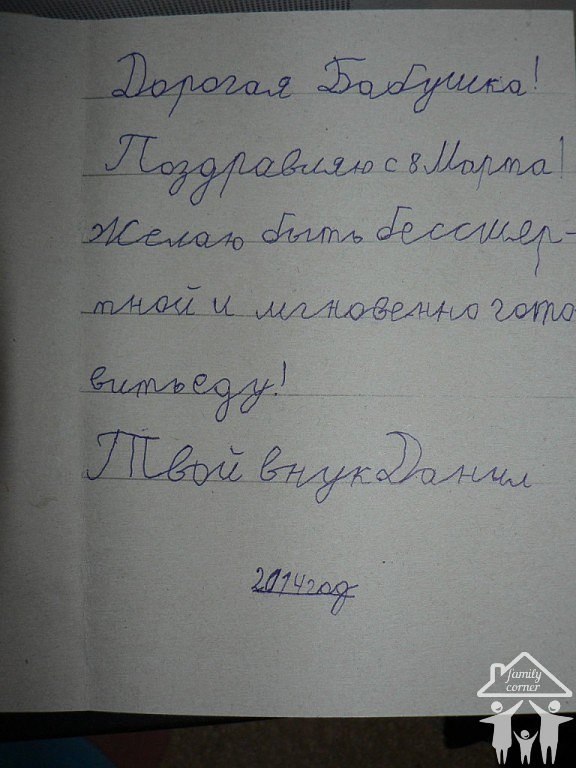 Дорогая Бабушка!
Поздравляю с 8 Марта!
Желаю быть бессмер-
тной и мгновенно гото
вить еду!
Твой внук Данил
2014 год
family
corner